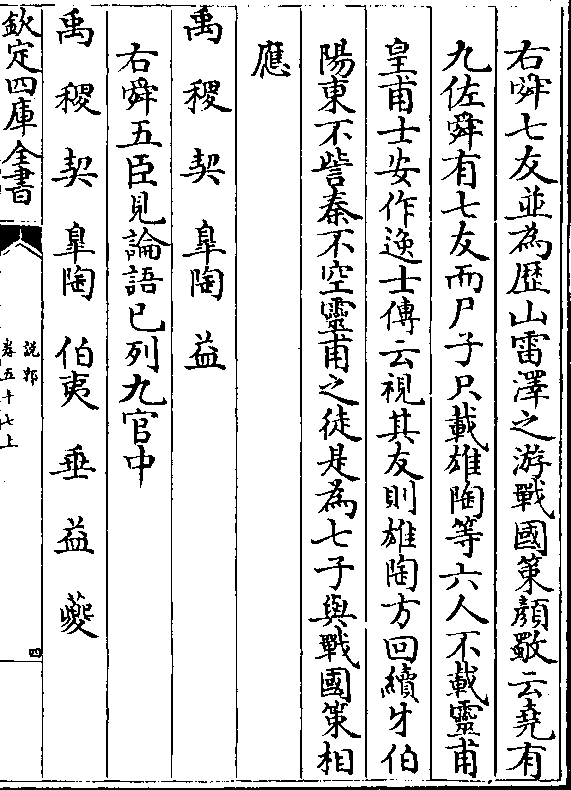 右舜七友並為歴山雷澤之游戰國策顔歜云堯有
九佐舜有七友而尸子只載雄陶等六人不載靈甫
皇甫士安作逸士傳云視其友則雄陶方回續牙伯
陽東不訾秦不空靈甫之徒是為七子與戰國策相
應
禹 稷 契 臯陶 益
右舜五臣見論語已列九官中
禹 稷 契 臯陶 伯夷 垂 益 夔
欽定四庫全書
説郛
卷五十七上
四